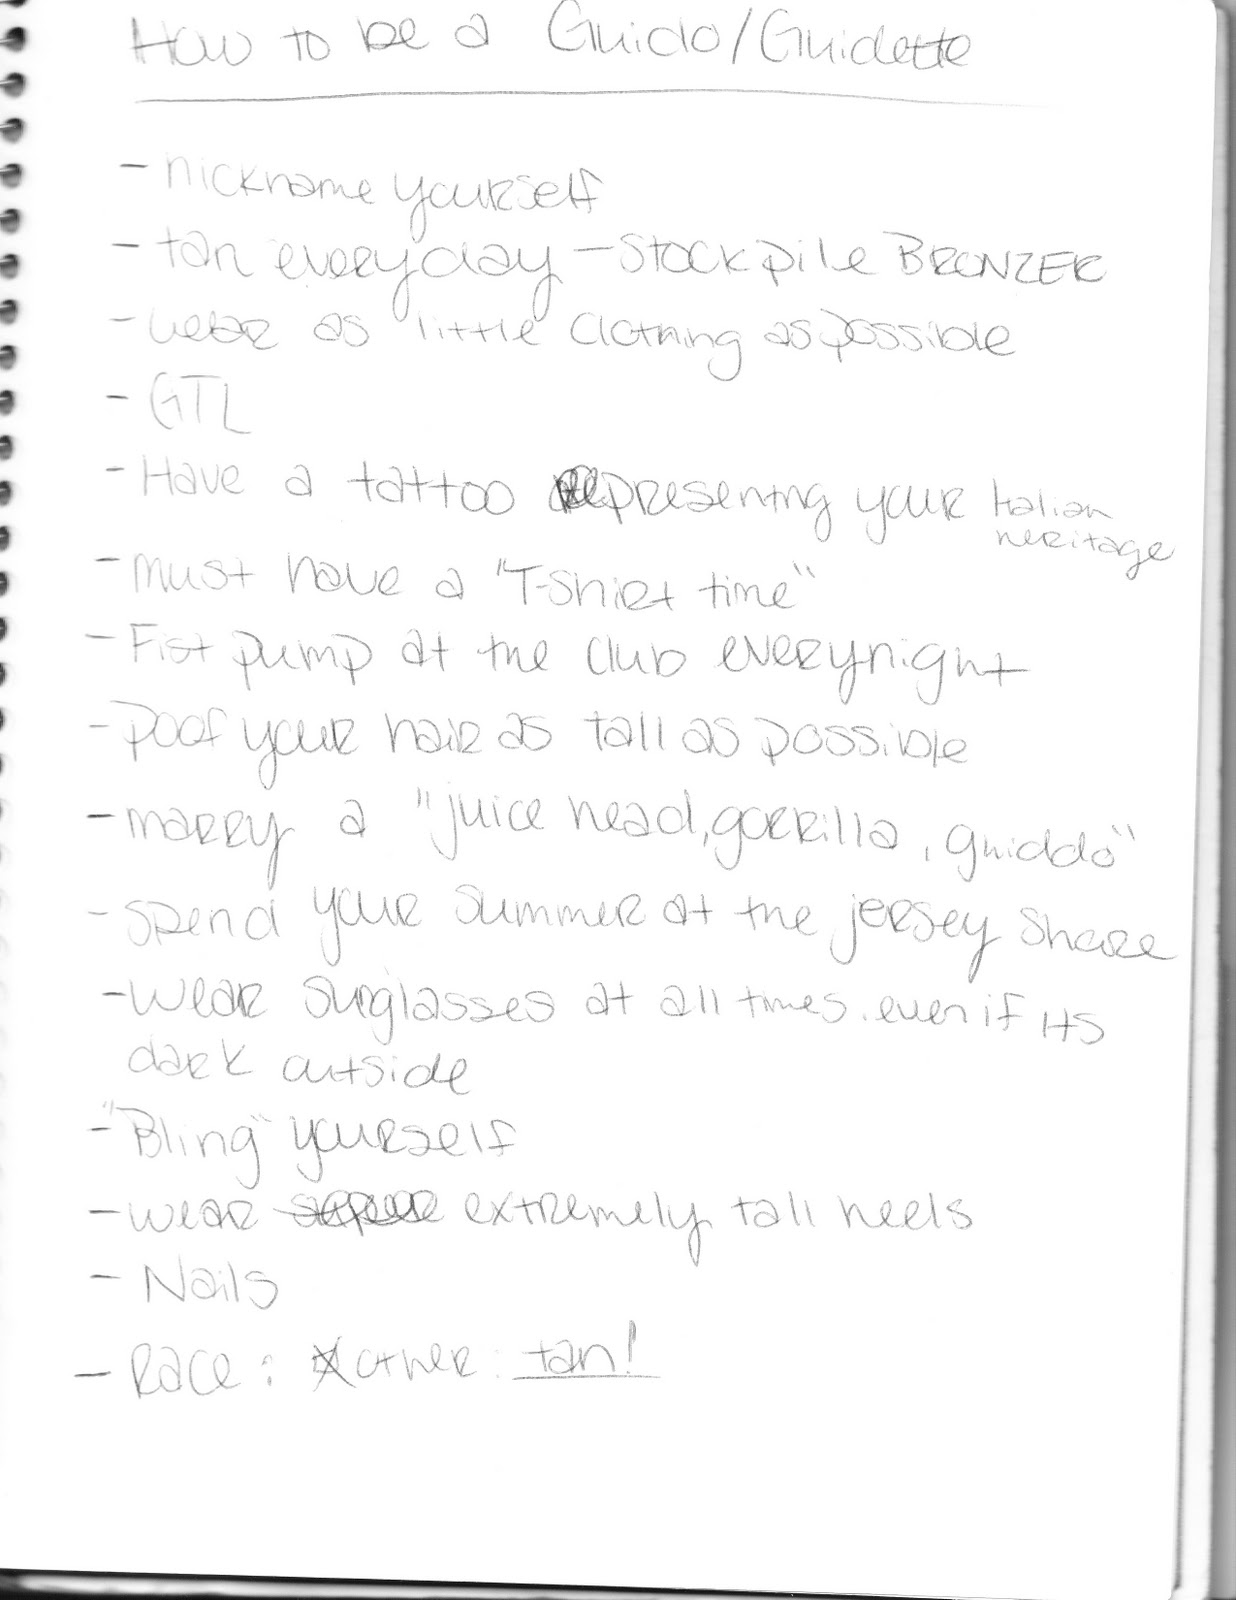 How to be a Guido/Guidette
- nickname yourself
- tan everyday - Stockpile BRONZER
- wear as little clothing as possible
- GTL
- Have a tattoo representing your Italian
heritage
- must have a "T-Shirt time"
- Fist pump at the club everynight
- poof your hair as tall as possible
- marry a "juice head, gorrilla, guiddo"
- spend your summer at the jersey Shore
- wear sunglasses at all times. even if its
dark outside
- "Bling" yourself
- wear extremely tall heels
- Nails
- Race: x other: tan!